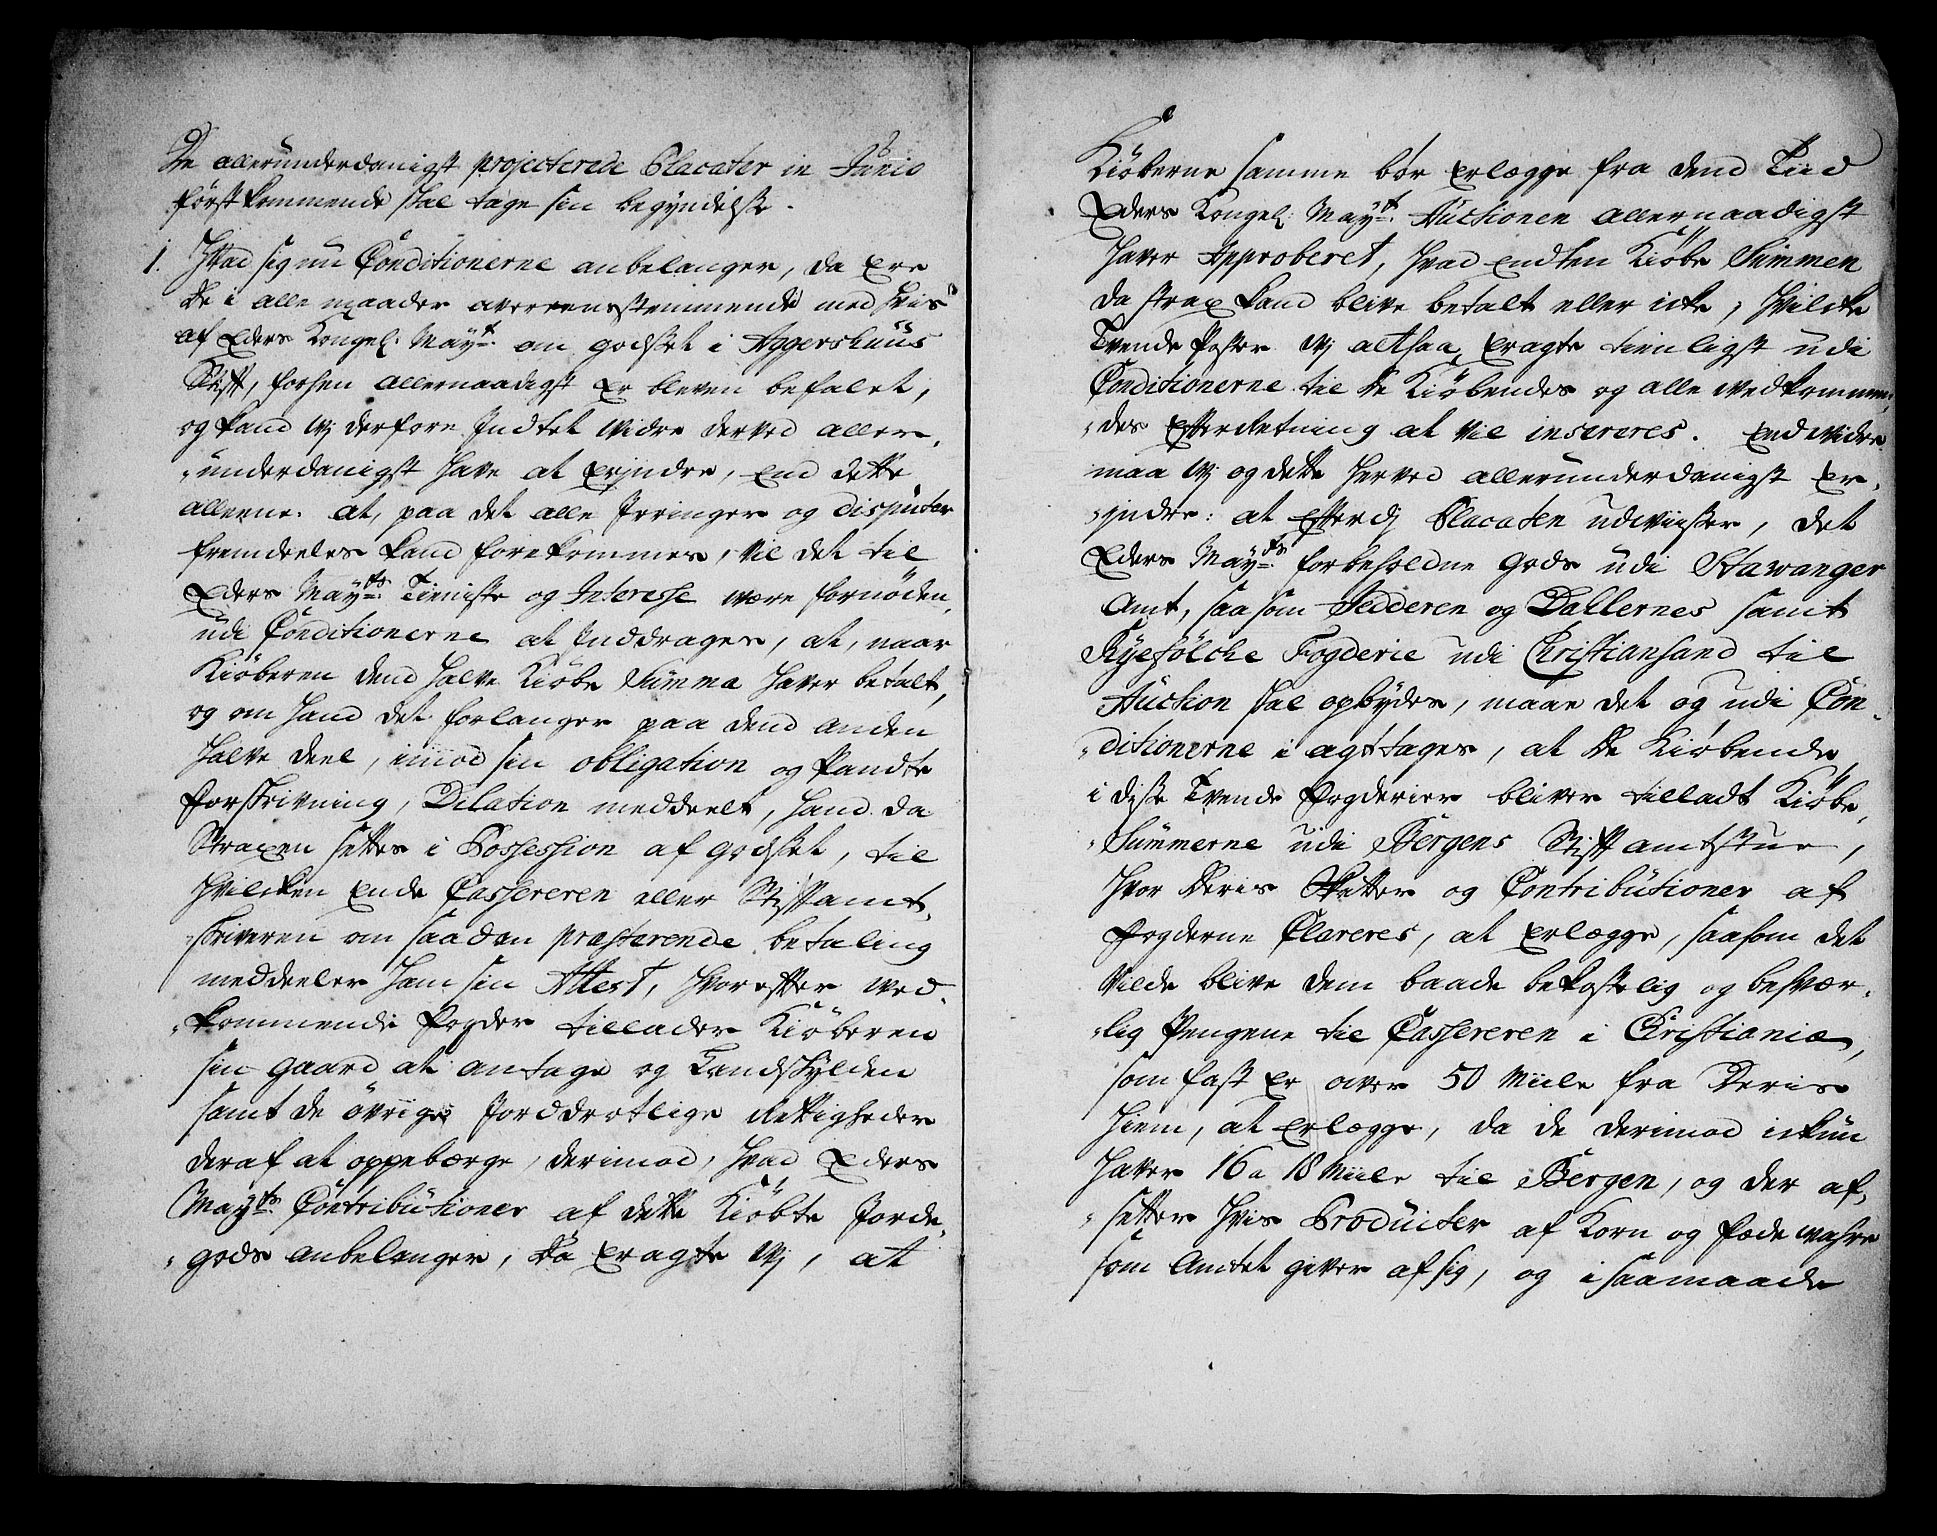 De allerunderdanigst projecterede Placater in Junio
førstkommende skal tage sin begyndelse.
1. Hvad sig nu Conditionerne anbelanger, da ere
de i alle maader overeensstemmende med hvis
af Eders Kongel. Mayt. om godset i Aggershuus
Stift, forhen allernaadigst er bleven befalet,
og kand vj derfore Indtet vidre derved aller-
underdanigst have at erindre, end dette
alleene. at, paa det alle Irringer og disputer
fremdeeles kand forekommes, vil det til
Eders Mayts. Tieniste og Interesse være fornøden,
udi Conditionerne at Inddrages, at, naar
Kiøberen dend halve Kiøbe Summa haver betalt,
og om hand det forlanger paa dend anden
halve deel, imod sin obligation og Pandte
forskrivning, Dilation meddeelt, hand da
Straxen settes i Possession af godset, til
hvilcken Ende Cassereren eller Stiftamt-
skriveren om saadan præsterende betaling
meddeeler ham sin Attest, hvorefter ved-
kommende Fogder tillader Kiøberen
sin gaard at antage og Landskylden
samt de øvrige Jorddrotlige Rettigheder
deraf at oppebærge, derimod, hvad Eders
Mayts. Contributioner af dette Kiøbte Jorde-
gods anbelanger, da eragte vj, at
Kiøberne samme bør erlægge fra dend Tiid
Eders Kongel: Mayt. Auctionen allernaadigst
haver Approberet, hvad endten Kiøbe Summen
da strax kand blive betalt eller icke, hvilcke
Tvende Poster vj altsaa eragte tienligst udi
Conditionerne til de Kiøbendes og alle vedkommen-
des Efterretning at vil insereres. End vidre
maa vj og dette herved allerunderdanigst er-
indre: at efterdj Placaten udviiser, det
Eders Mayts. forbeholdne gods udi Stawanger
Amt, saasom Jedderen og Dallernes samt
Ryefølcke Fogderie udi Christiansand til
Auction skal opbydes, maae det og udi Con-
ditionerne i agt tages, at de Kiøbende
i disse Tvende Fogderier bliver tilladt Kiøbe
Summerne udi Bergens Stiftamtstue,
hvor deris Skatter og Contributioner af
Fogderne Clareres, at erlægge, saasom det
vilde blive dem baade bekostelig og besvær-
lig Pengene til Cassereren i Christiania,
som fast er over 50 Miile fra deris
hiem, at erlægge, da de derimod ickun
haver 16 a 18 Miile til Bergen, og der af-
setter hvis Producter af Korn og Fæde vahre
som Amtet giver af sig, og i saamaade